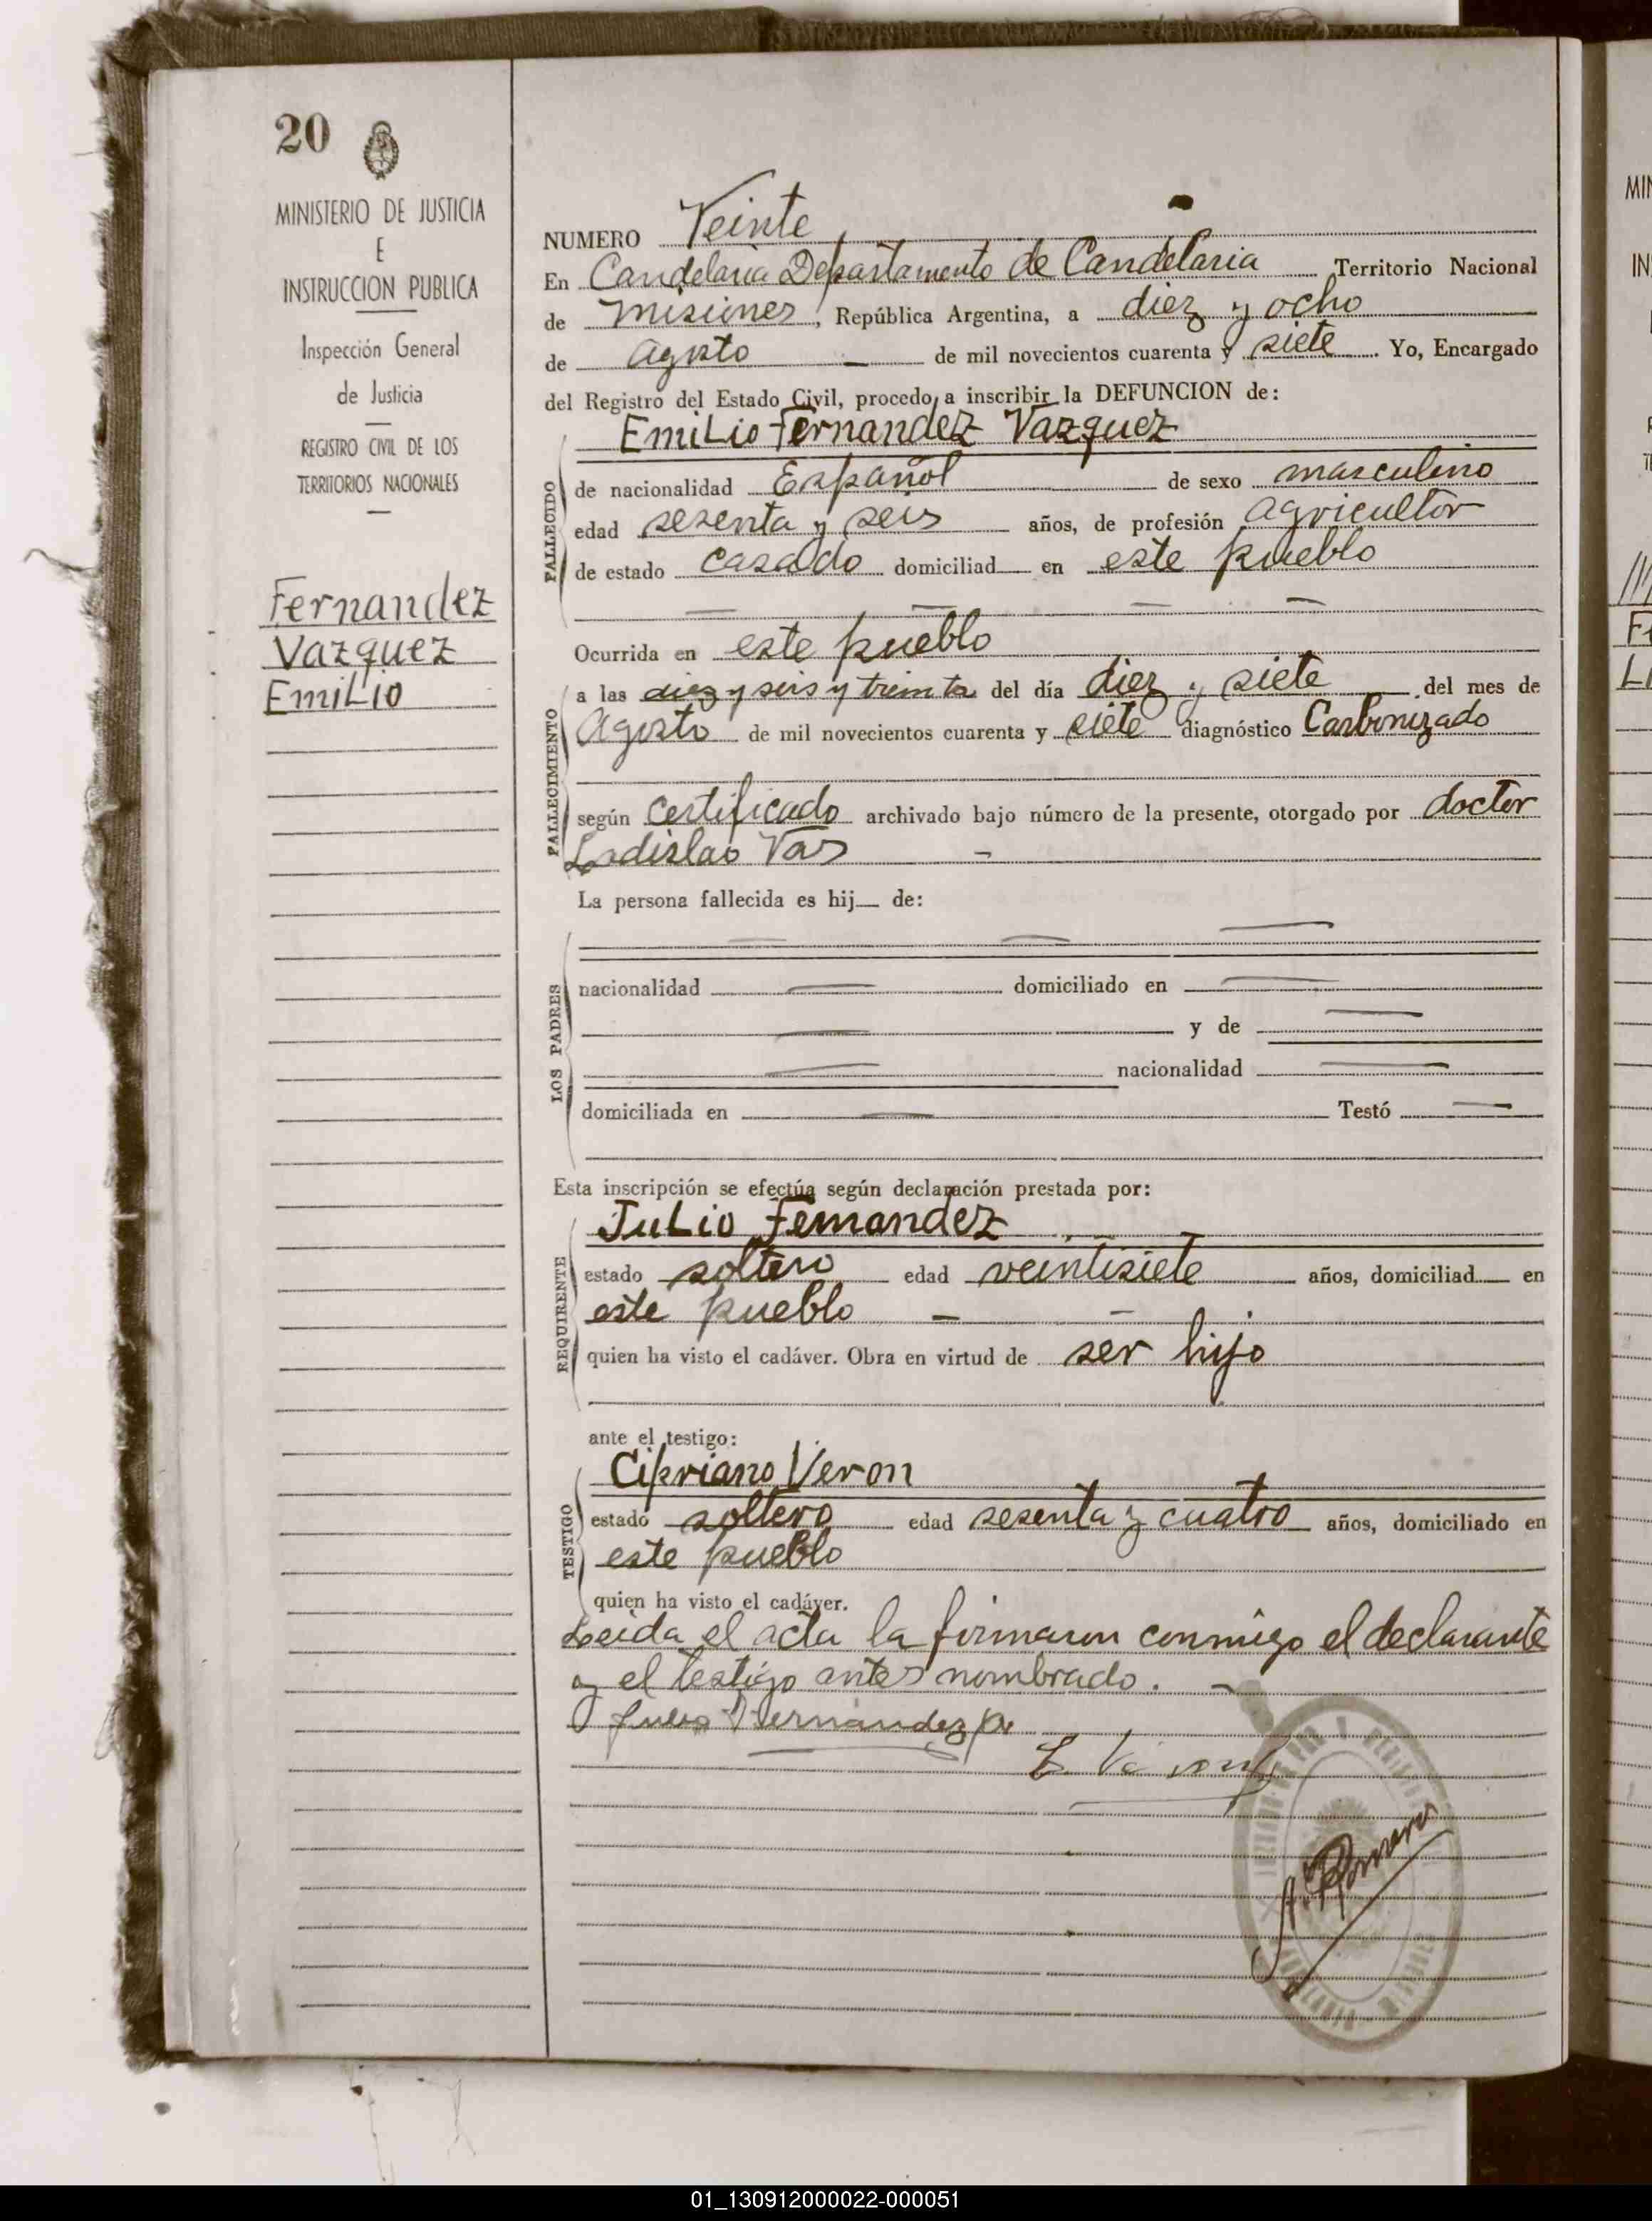 20
MINISTERIO DE JUSTICIA
E
INSTRUCCION PUBLICA
Inspección General
de Justicia
REGISTRO CIVIL DE LOS
TERRITORIOS NACIONALES
Fernandez
Vazquez
Emilio
NUMERO Veinte
En Candelaria Departamento de Candelaria Territorio Nacional
de Misiones, República Argentina, a diez y ocho
de Agosto de mil novecientos cuarenta y siete. Yo, Encargado
del Registro del Estado Civil, procedo a inscribir la DEFUNCION de:
Emilio Fernandez Vazquez
FALLECIDO
de nacionalidad Español de sexo masculino
edad sesenta y seis años, de profesión agricultor
de estado casado domiciliad en este pueblo
Ocurrida en este pueblo
FALLECIMIENTO
a las diez y seis y treinta del día diez y siete del mes de
Agosto de mil novecientos cuarenta y siete diagnóstico Carbonizado
según certificado archivado bajo número de la presente, otorgado por doctor
Ladislao Vas
La persona fallecida es hij de:
LOS PADRES
nacionalidad domiciliado en
y de
nacionalidad
domiciliada en Testó
Esta inscripción se efectúa según declaración prestada por:
REQUIRENTE
Julio Fernandez
estado soltero edad veintisiete años, domiciliad en
este pueblo
quien ha visto el cadáver. Obra en virtud de ser hijo
ante el testigo:
TESTIGO
Cipriano Veron
estado soltero edad sesenta y cuatro años, domiciliado en
este pueblo
quien ha visto el cadáver.
Leida el acta la firmaron conmigo el declarante
y el testigo antes nombrado.
Julio Fernandez
MIN
IN
01_130912000022-000051